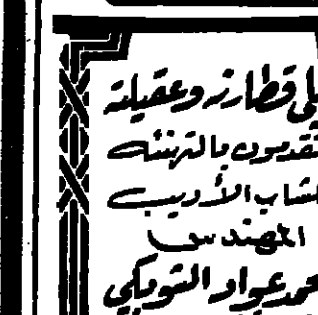 قطارنه وعقيلته
يتقدمون بالتهنئه
للشاب الأديب
المهندس
محمد عواد الشوبكي